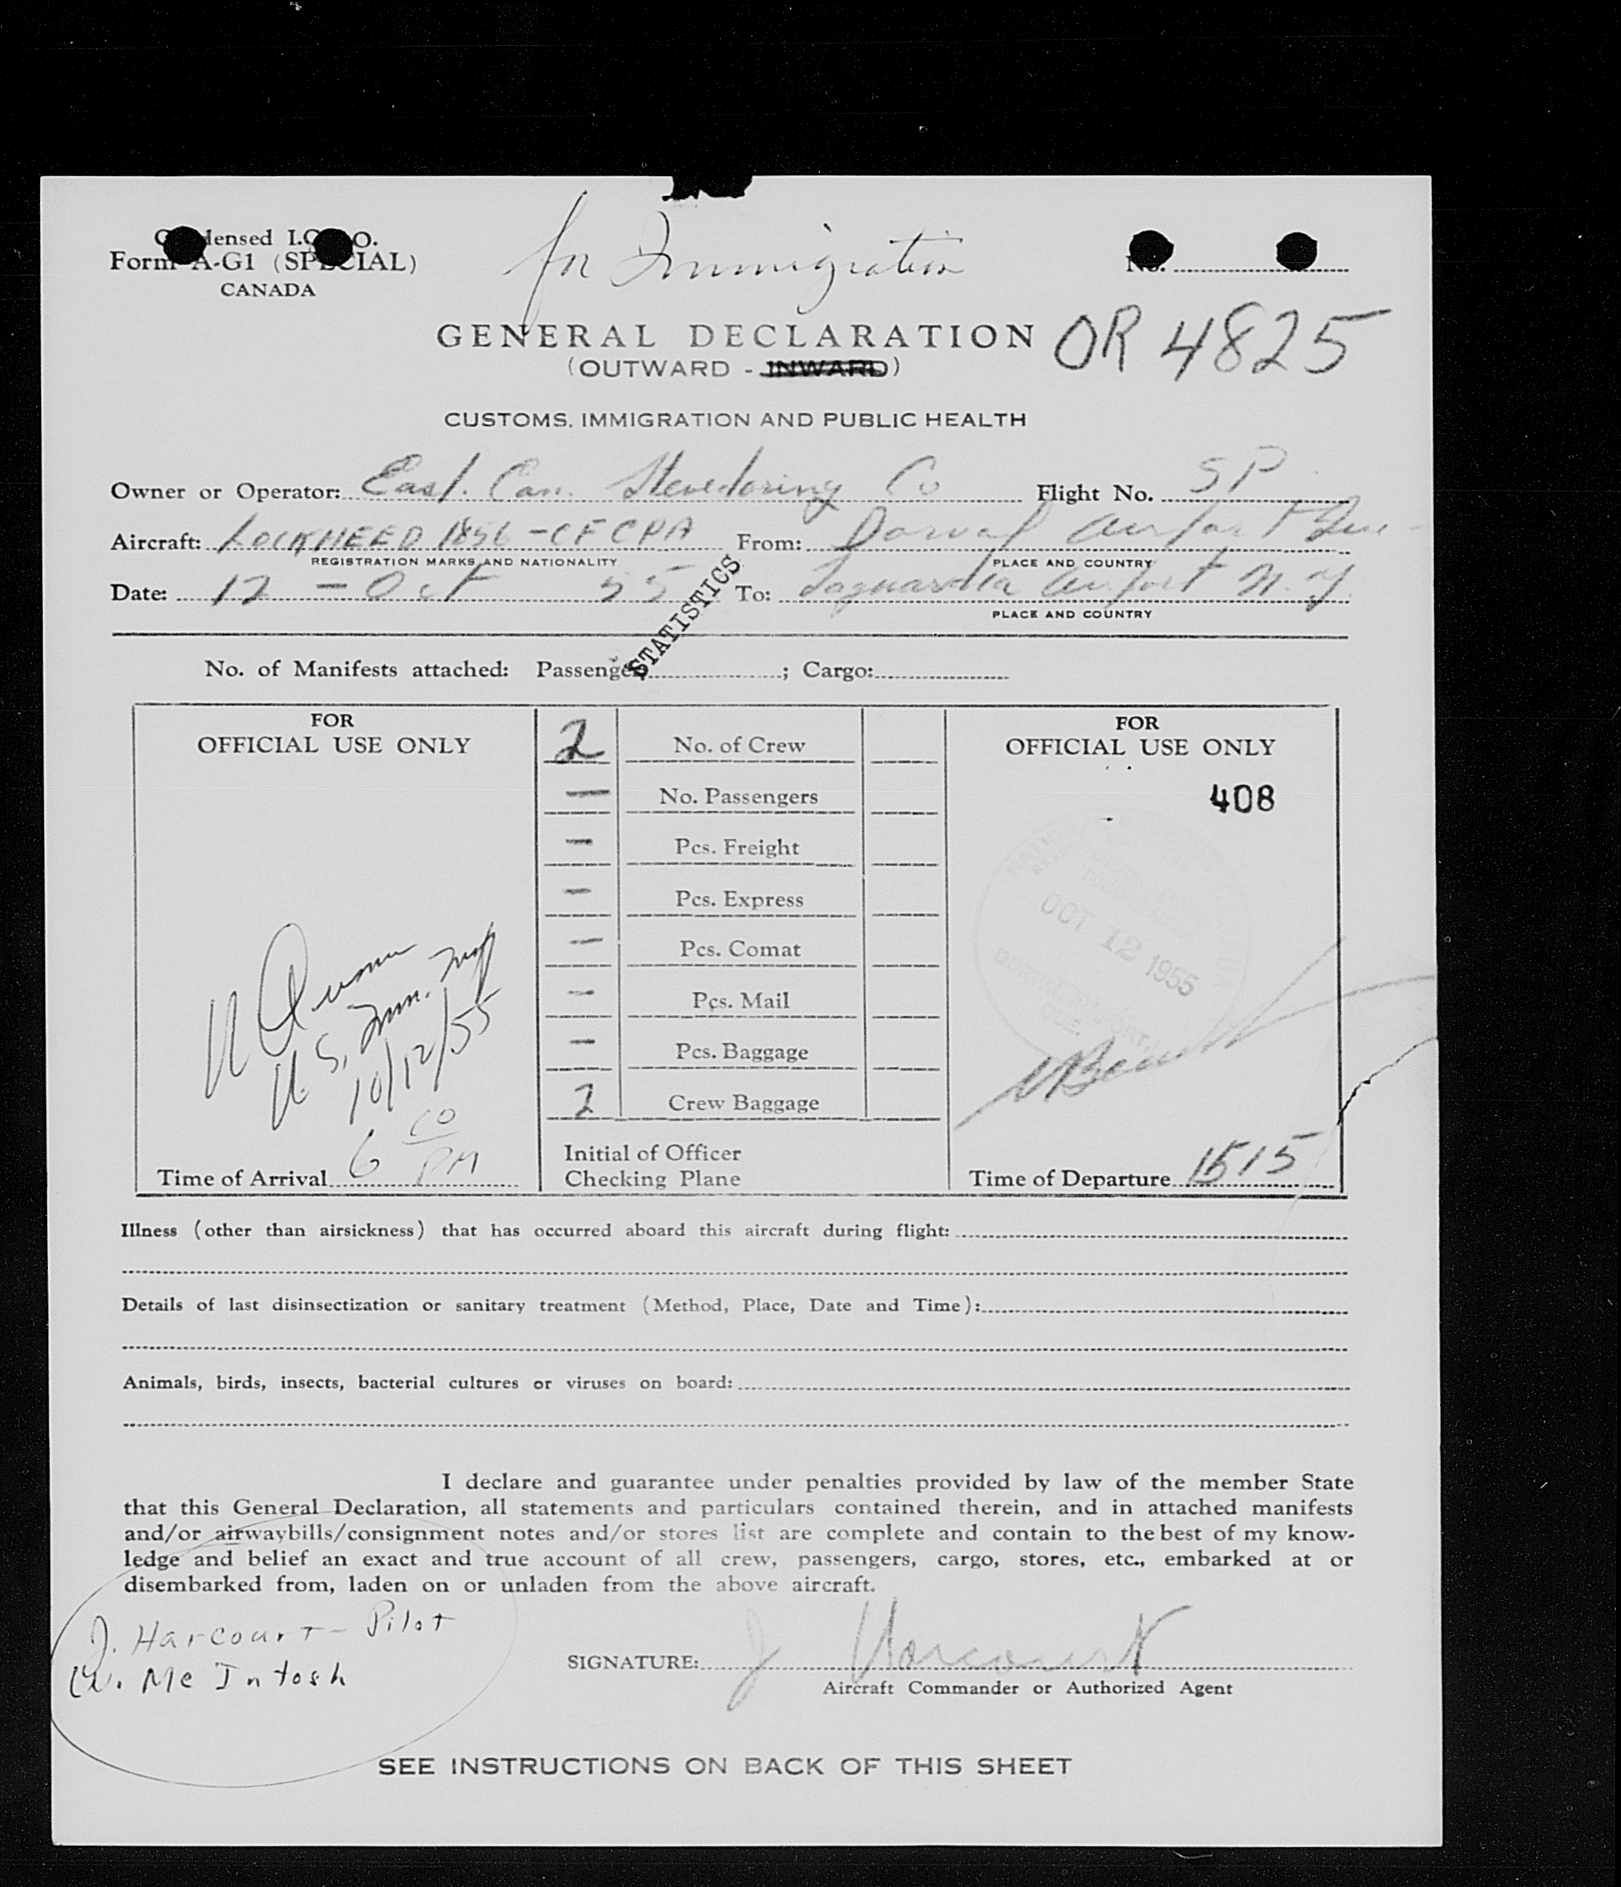 for Immigration
Form A-G1 (SPECIAL)
CANADA
No.
GENERAL DECLARATION
OR 4825
(OUTWARD - INWARD)
CUSTOMS, IMMIGRATION AND PUBLIC HEALTH
Owner or Operator: East. Can. Stevedoring Co Flight No. SP
Aircraft: LOCKHEED 1856 - CFCPA From: Dorval Airport Que
REGISTRATION MARKS AND NATIONALITY PLACE AND COUNTRY
Date: 12 - Oct 55 To: Laguardia Airport N.Y.
PLACE AND COUNTRY
STATISTICS
No. of Manifests attached: Passenger ; Cargo:
FOR
OFFICIAL USE ONLY
2 No. of Crew
- No. Passengers
- Pcs. Freight
- Pcs. Express
- Pcs. Comat
- Pcs. Mail
- Pcs. Baggage
2 Crew Baggage
Initial of Officer
Checking Plane
U.S. Imm.
10/12/55
Time of Arrival 6 10 PM
FOR
OFFICIAL USE ONLY
408
OCT 12 1955
Time of Departure 1515
Illness (other than airsickness) that has occurred aboard this aircraft during flight:
Details of last disinsectization or sanitary treatment (Method, Place, Date and Time):
Animals, birds, insects, bacterial cultures or viruses on board:
I declare and guarantee under penalties provided by law of the member State
that this General Declaration, all statements and particulars contained therein, and in attached manifests
and/or airwaybills/consignment notes and/or stores list are complete and contain to the best of my know-
ledge and belief an exact and true account of all crew, passengers, cargo, stores, etc., embarked at or
disembarked from, laden on or unladen from the above aircraft.
J. Harcourt - Pilot
W. McIntosh
SIGNATURE: J Harcourt
Aircraft Commander or Authorized Agent
SEE INSTRUCTIONS ON BACK OF THIS SHEET